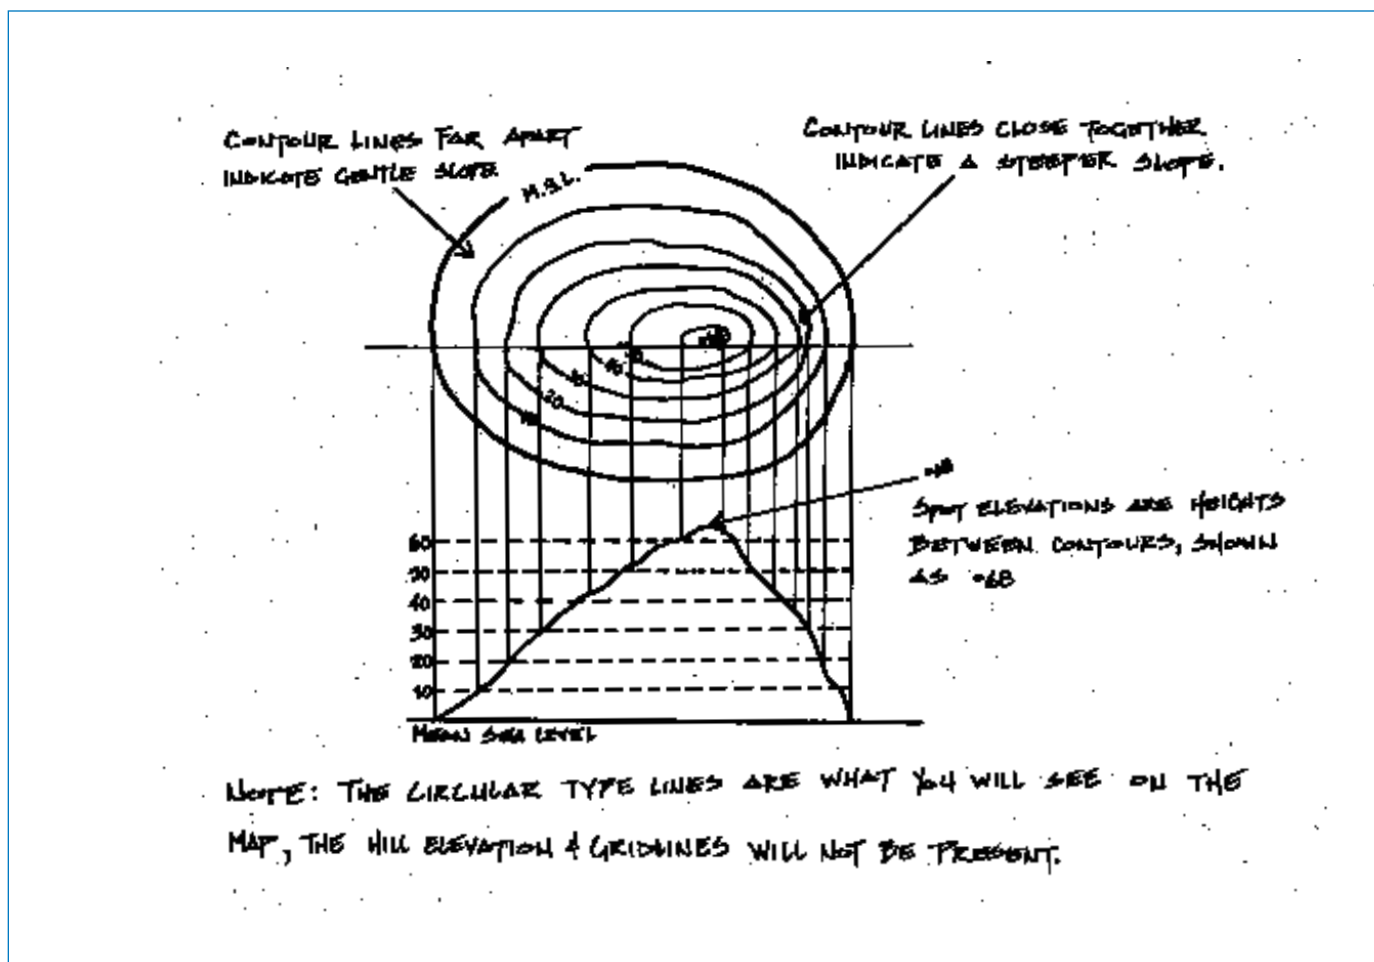 CONTOUR LINES FAR APART
INDICATE GENTLE SLOPE
CONTOUR LINES CLOSE TOGETHER
INDICATE A STEEPER SLOPE.
M.S.L.
40
30
20
10
SPOT ELEVATIONS ARE HEIGHTS
BETWEEN CONTOURS, SHOWN
AS •68
60
50
40
30
20
10
MEAN SEA LEVEL
NOTE: THE CIRCULAR TYPE LINES ARE WHAT YOU WILL SEE ON THE
MAP, THE HILL ELEVATION & GRIDLINES WILL NOT BE PRESENT.